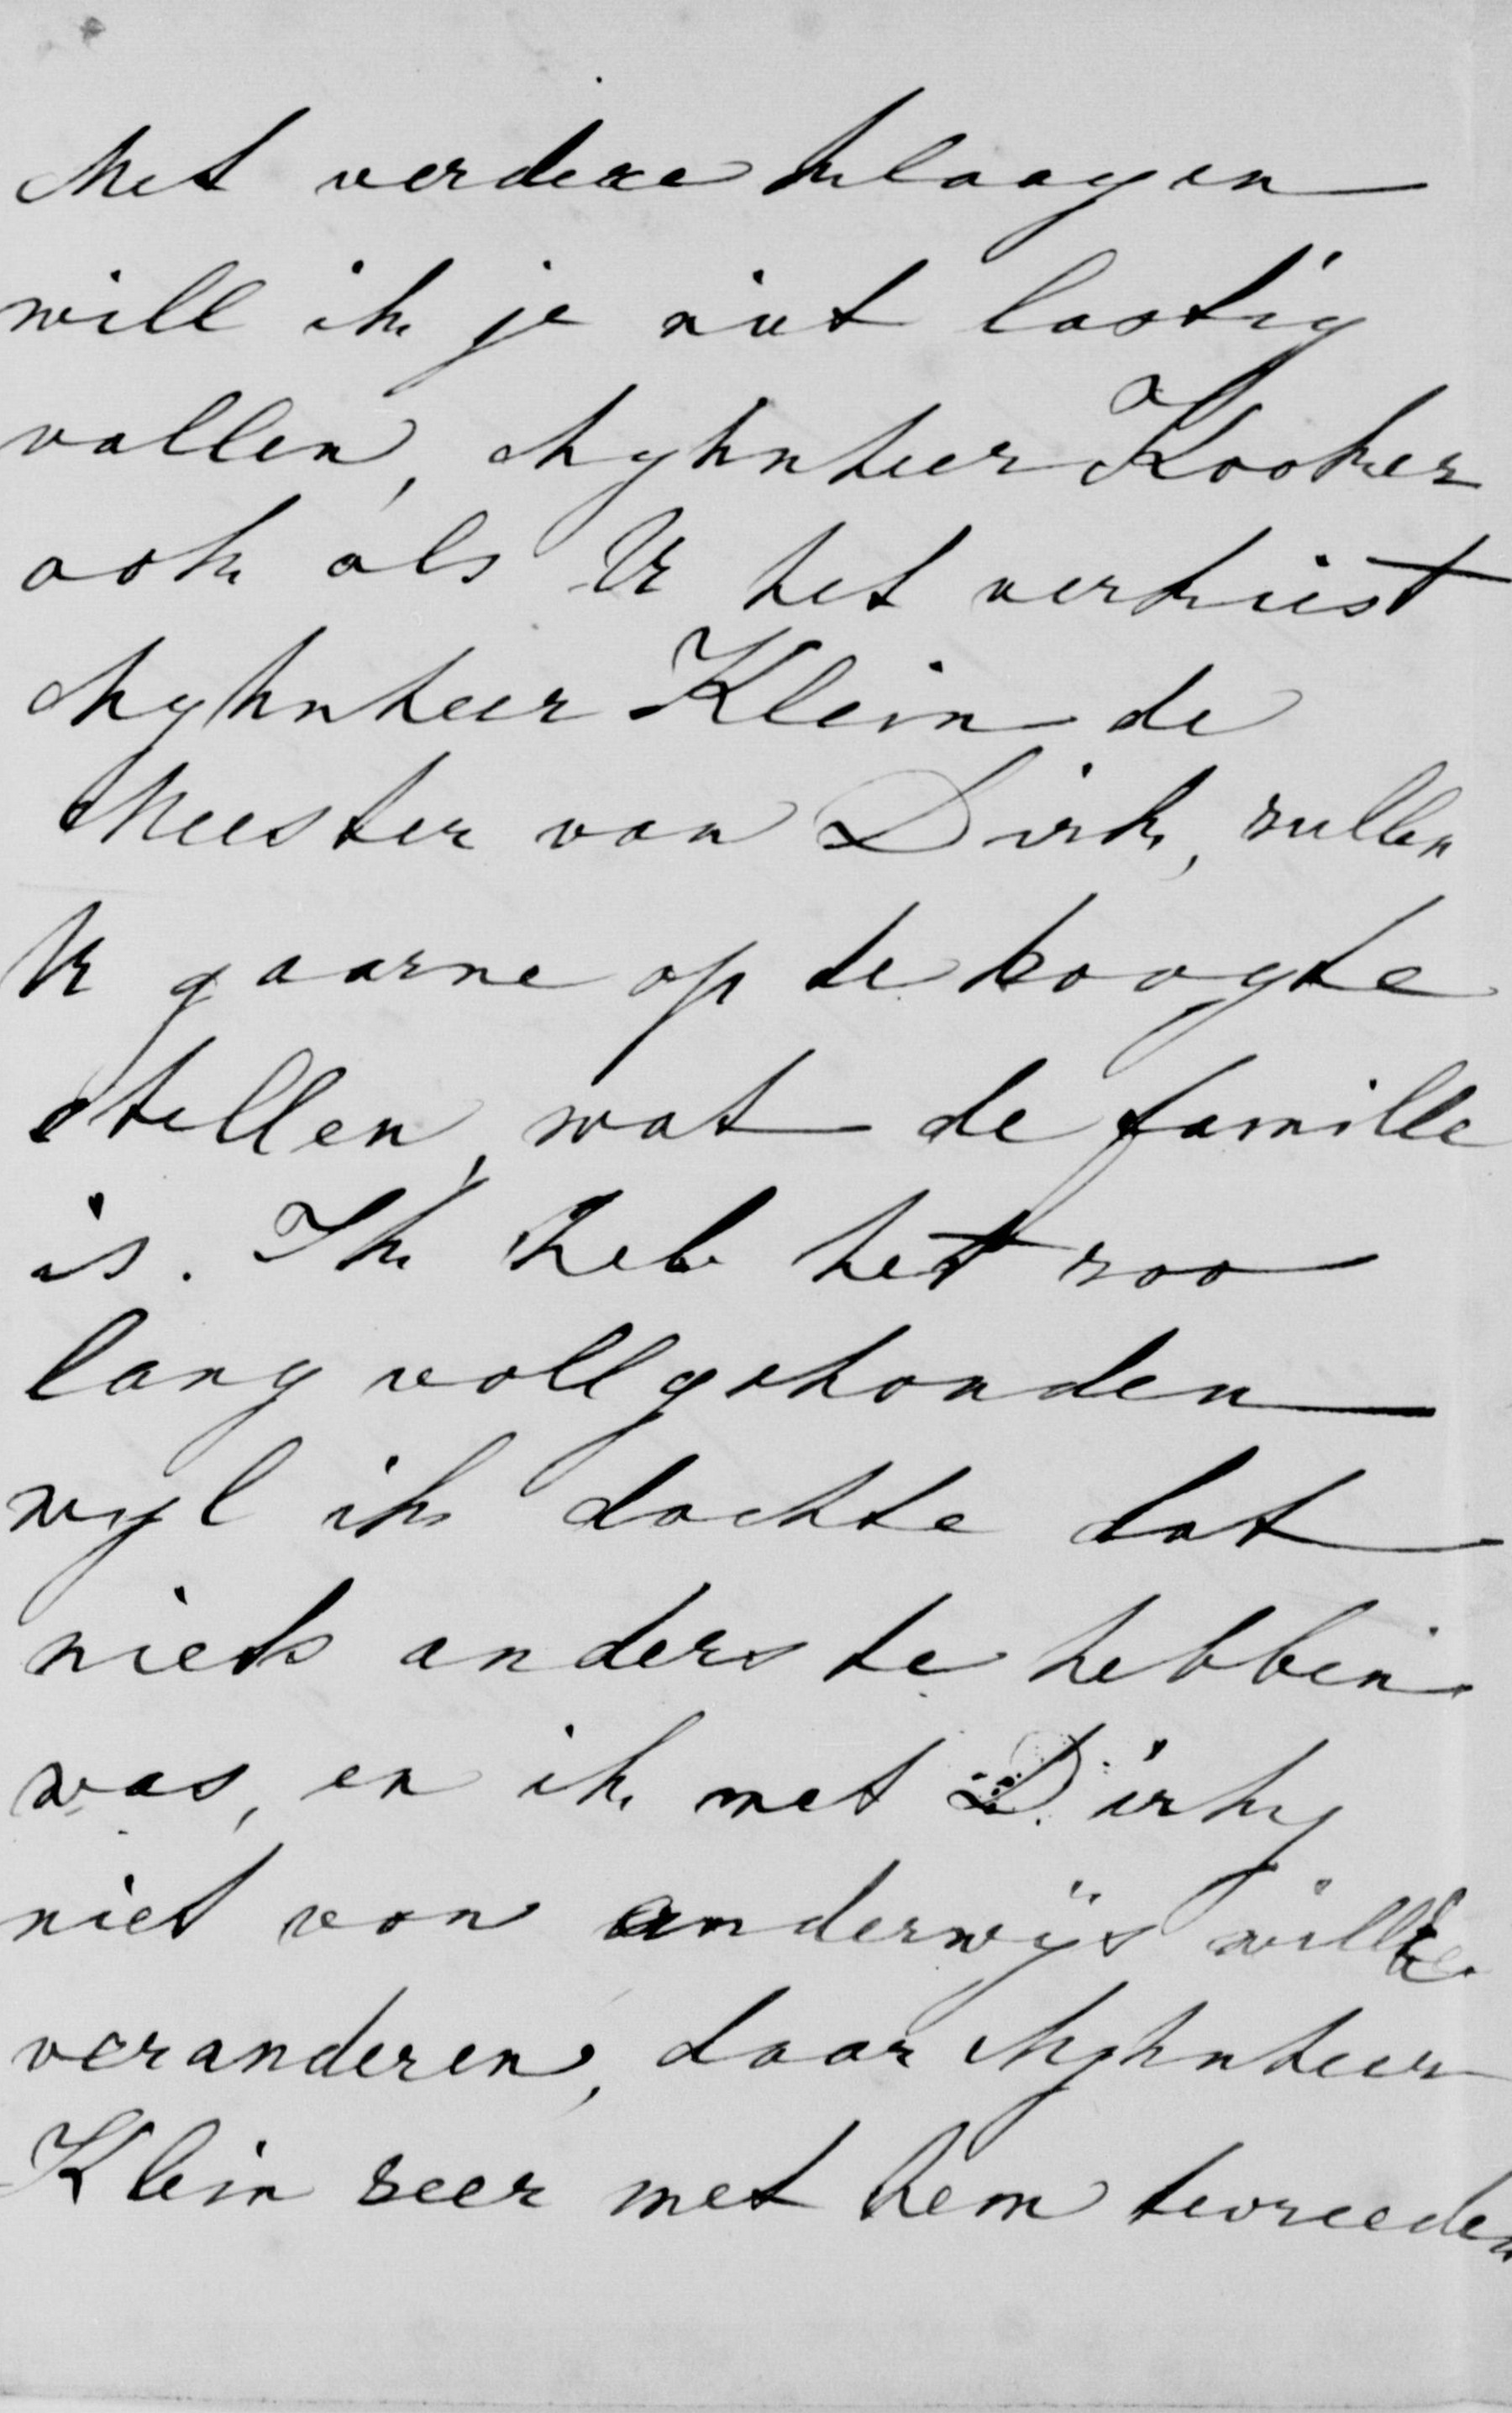 Met verdere klaagen
will ik je niet lastig
vallen, Myhnheer Kooker
ook als U het verkiest
Myhnheer Klein de
Meester van Dirk, zullen
U gaarne op de hoogte
stellen, wat de famille
is. Ik heb het zoo
lang vollgehouden
wyl ik dachte dat
niets anders te hebben
was, en ik met Dirky
niet von onderwijs willte
veranderen, daar Myhnheer
Klein zeer met hem tevreeden